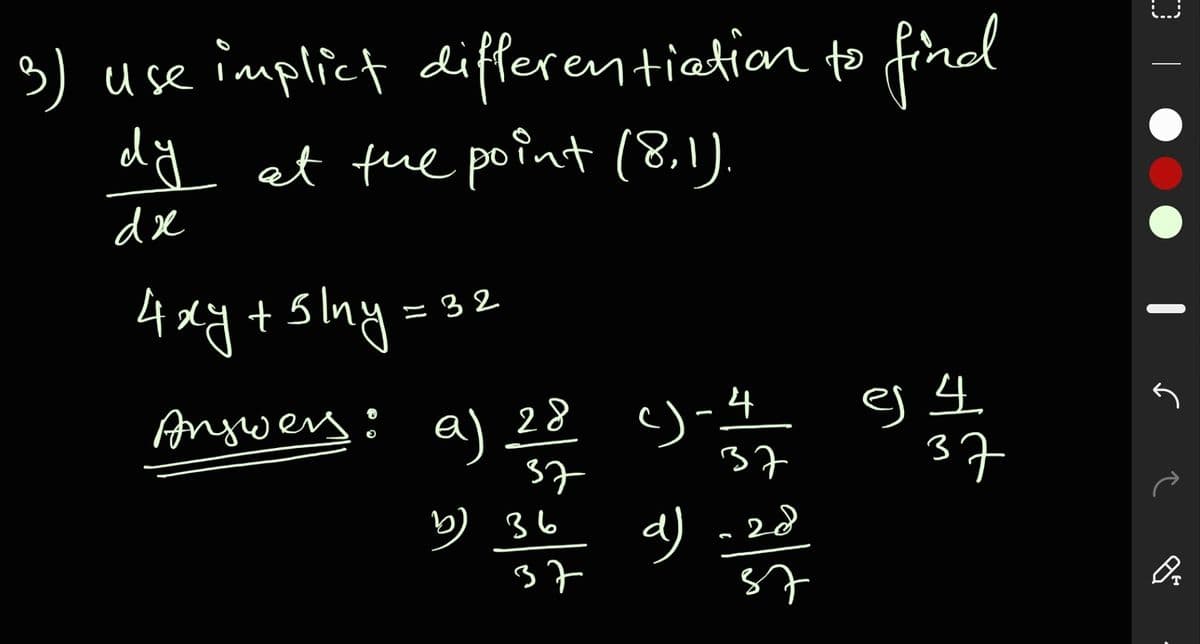 3) use implict differentiation to find
dy/dx at the point (8,1).
4xy + 5 lny = 32
Answers: a) 28/37 c) -4/37 e) 4/37
b) 36/37 d) -28/37